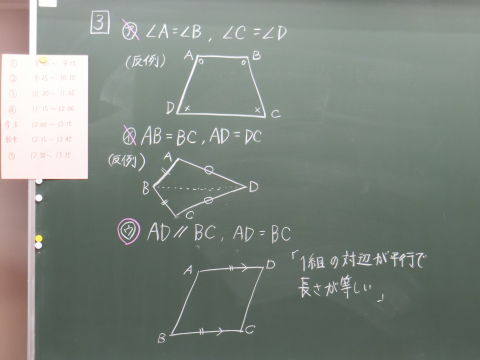 3 ア ∠A=∠B, ∠C=∠D
(反例)
A B
D C
イ AB=BC, AD=DC
(反例)
A
B D
C
ウ AD∥BC, AD=BC
A D
B C
「1組の対辺が平行で
長さが等しい」